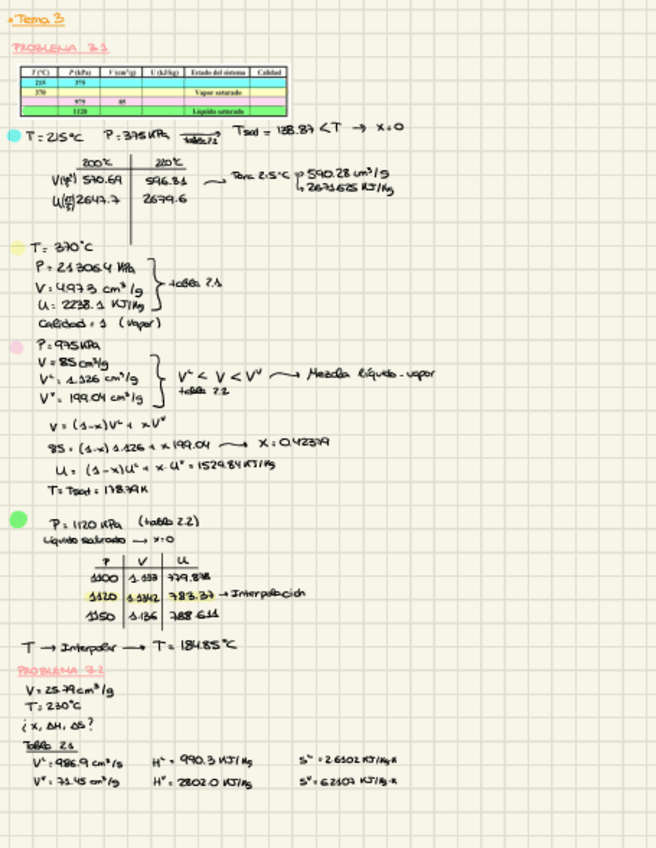 • Tema 3
PROBLEMA 3.1
T (°C) P (kPa) V (cm³/g) U (kJ/kg) Estado del sistema Calidad
215 375
370 Vapor saturado
975 85
1120 Líquido saturado
T = 215°C P = 375 KPa → Tsat = 138.87 < T → x=0
200°C 220°C
V 570.69 596.81 → Para 215°C → 590.28 cm³/g
U 2647.7 2679.6 → 2671.625 KJ/Kg
T = 370°C
P = 21306.4 KPa
V = 4.973 cm³/g
U = 2238.1 KJ/Kg
tabla 2.1
Calidad = 1 (vapor)
P = 975 KPa
V = 85 cm³/g
Vᴸ = 1.126 cm³/g
Vⱽ = 199.04 cm³/g
Vᴸ < V < Vⱽ → Mezcla líquido-vapor
tabla 2.2
V = (1-x)Vᴸ + xVⱽ
85 = (1-x) 1.126 + x 199.04 → x = 0.42379
U = (1-x)Uᴸ + x·Uⱽ = 1529.84 KJ/Kg
T = Tsat = 178.79 K
P = 1120 KPa (tabla 2.2)
Líquido saturado → x=0
P V U
1100 1.133 779.878
1120 1.1342 783.37 → Interpolación
1150 1.136 788.611
T → Interpolar → T = 184.85°C
PROBLEMA 3.2
V = 25.79 cm³/g
T = 230°C
¿x, ΔH, ΔS?
Tabla 2.1
Vᴸ = 986.9 cm³/g Hᴸ = 990.3 KJ/Kg Sᴸ = 2.6102 KJ/Kg·K
Vⱽ = 71.45 cm³/g Hⱽ = 2802.0 KJ/Kg Sⱽ = 6.2107 KJ/Kg·K